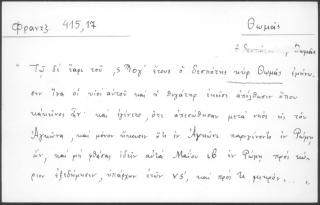 Φραντζ 415,17 Θωμᾶς
ὁ δεσπότης Θωμᾶς
" Τῷ δὲ ἔαρι τοῦ ͵ϛ Ϡογ' ἔτους ὁ δεσπότης κὺρ Θωμᾶς
σεν ἵνα οἱ υἱοὶ αὐτοῦ καὶ ἡ θυγάτηρ ἐκεῖσε ἀπέλθωσιν ὅπου
κἀκεῖνος ἦν· καὶ ἐγένετο, ὅτι ἀπεσώθησαν μετὰ νηὸς εἰς τὸν
Ἀγκῶνα, καὶ μόνον ἤκουσεν ὅτι ἐν Ἀγκῶνι παρεγένοντο ἐν Ῥώμῃ
ὤν, καὶ μὴ φθάσας ἰδεῖν αὐτὰ Μαΐου ιβ ἐν Ῥώμῃ πρὸς κύ-
ριον ἐξεδήμησεν, ὑπάρχων ἐτῶν νϛ', καὶ πρὸς τε μικρόν... ,